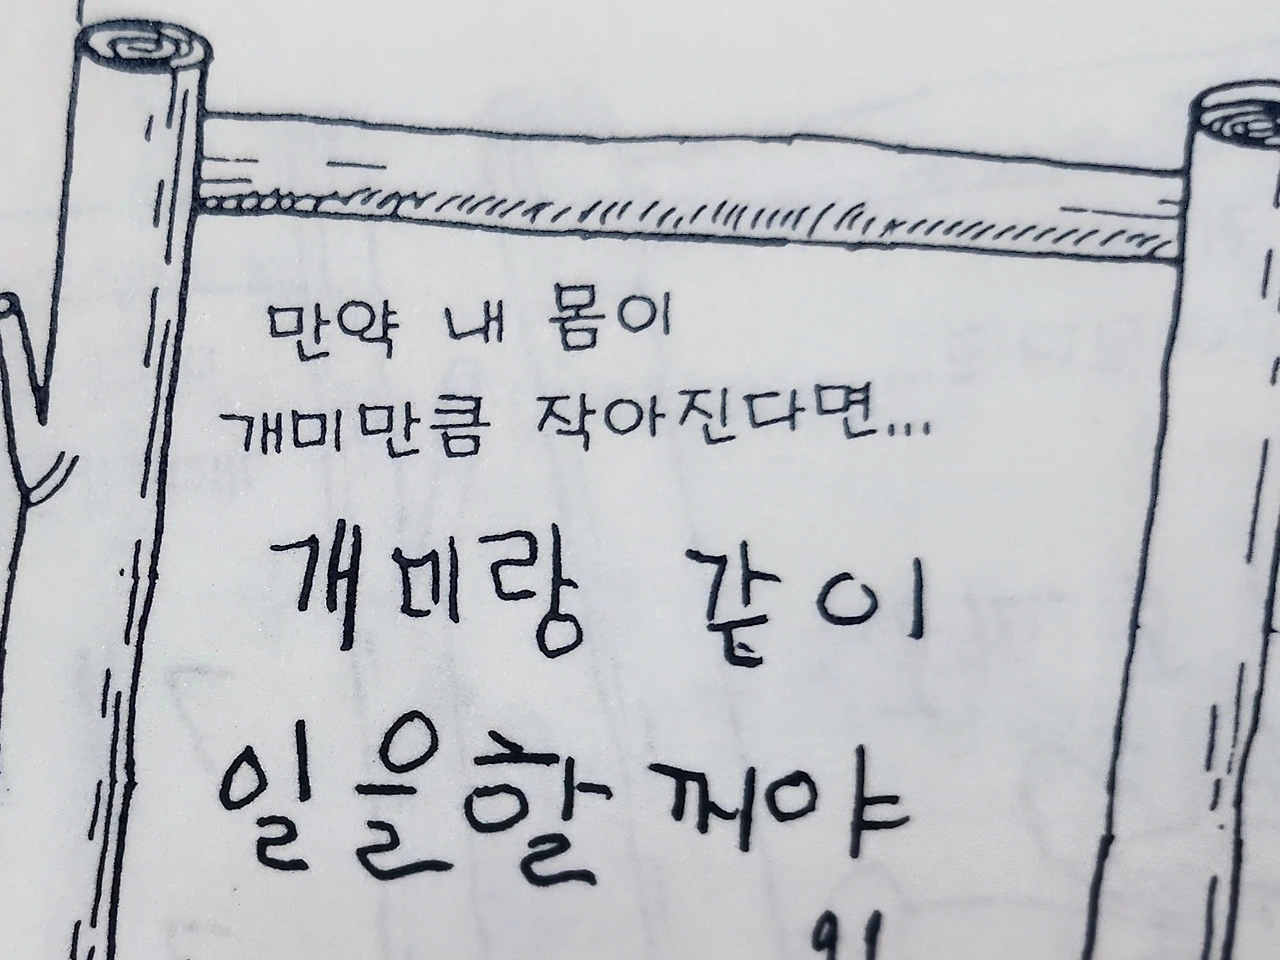 만약 내 몸이
개미만큼 작아진다면...
개미랑 같이
일을할 꺼야